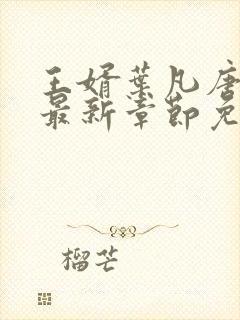 王婿葉凡唐
最新章節免
榴芒